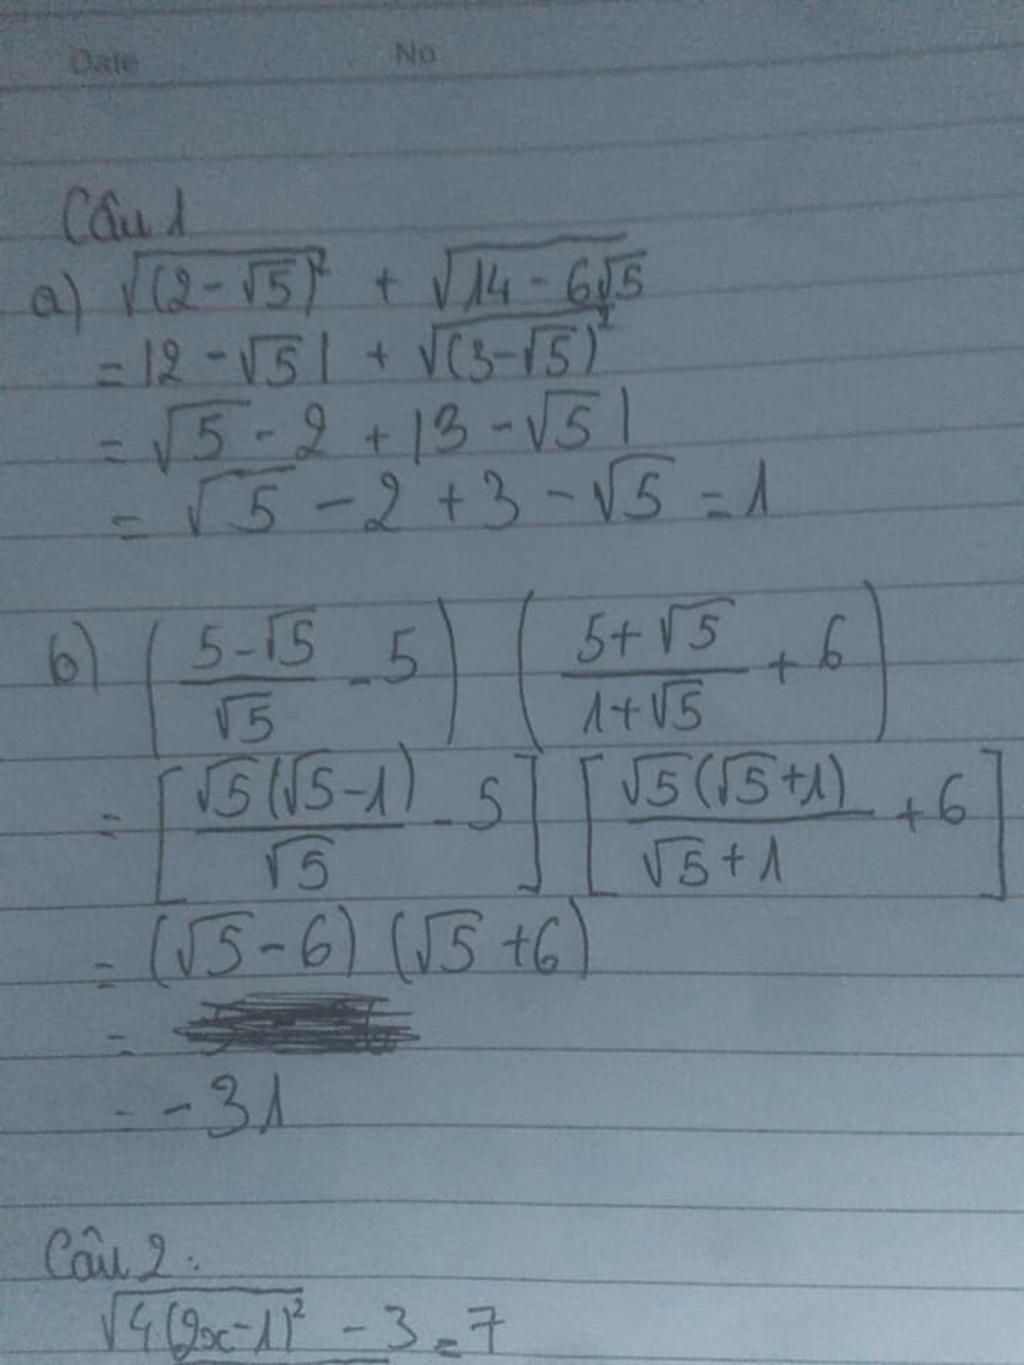 Date No
Câu 1
a) √(2-√5)² + √14-6√5
= |2-√5| + √(3-√5)²
= √5-2 + |3-√5|
= √5 - 2 + 3 - √5 = 1
b) (5-√5/√5 - 5) (5+√5/1+√5 + 6)
= [√5(√5-1)/√5 - 5] [√5(√5+1)/√5+1 + 6]
= (√5-6) (√5+6)
=
= -31
Câu 2:
√4(2x-1)² - 3 = 7